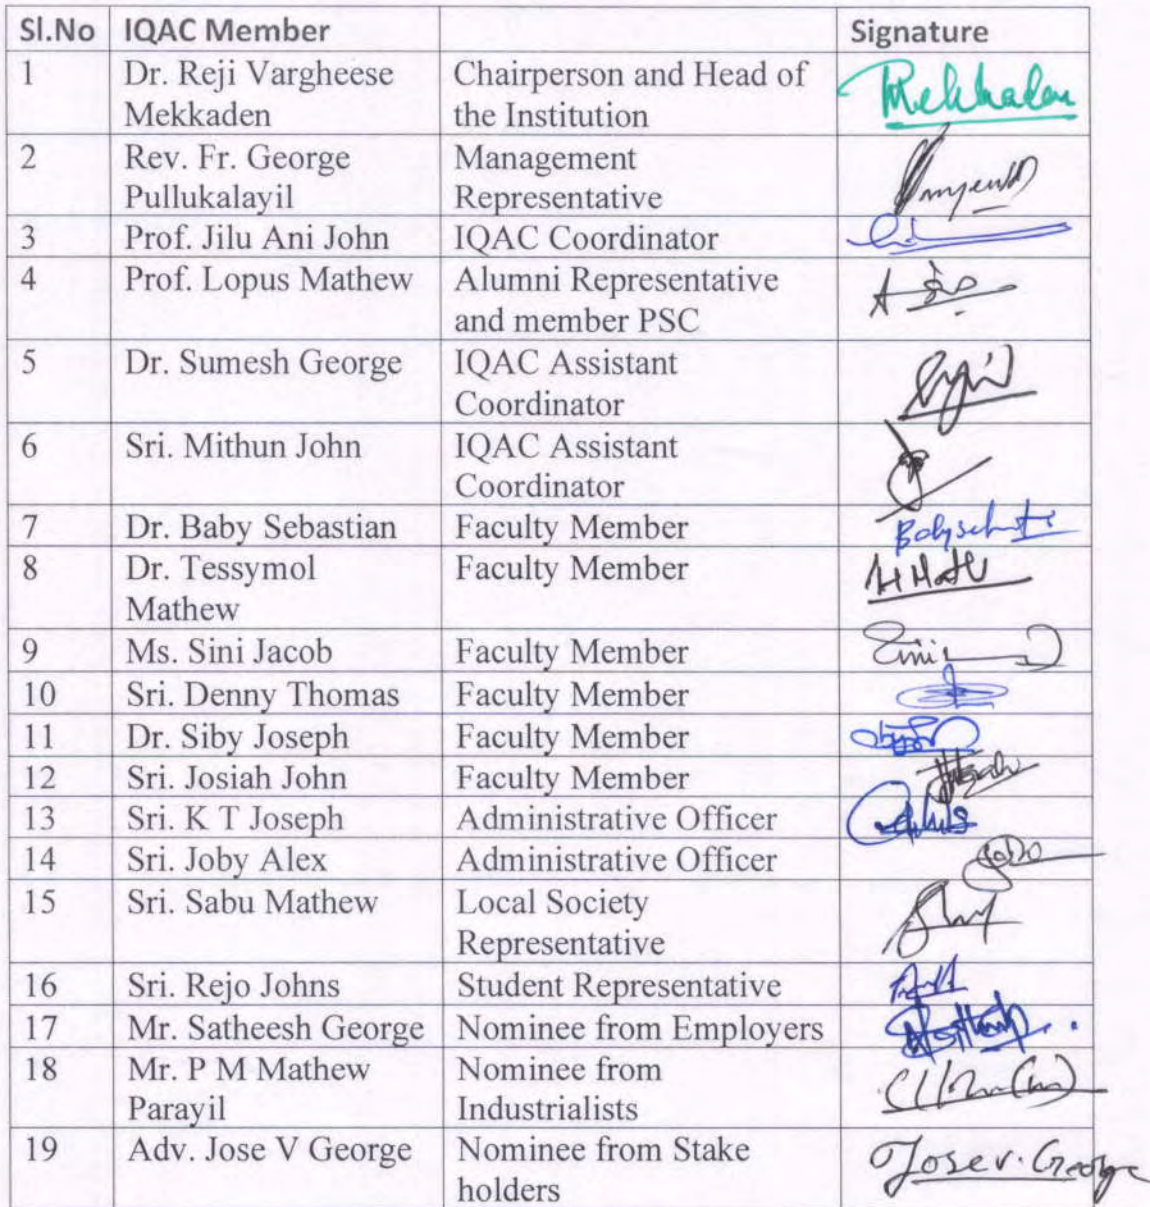 Sl.No IQAC Member Signature
1 Dr. Reji Vargheese Chairperson and Head of Mekkaden
Mekkaden the Institution
2 Rev. Fr. George Management
Pullukalayil Representative
3 Prof. Jilu Ani John IQAC Coordinator
4 Prof. Lopus Mathew Alumni Representative
and member PSC
5 Dr. Sumesh George IQAC Assistant
Coordinator
6 Sri. Mithun John IQAC Assistant
Coordinator
7 Dr. Baby Sebastian Faculty Member
8 Dr. Tessymol Faculty Member
Mathew
9 Ms. Sini Jacob Faculty Member
10 Sri. Denny Thomas Faculty Member
11 Dr. Siby Joseph Faculty Member
12 Sri. Josiah John Faculty Member
13 Sri. K T Joseph Administrative Officer
14 Sri. Joby Alex Administrative Officer
15 Sri. Sabu Mathew Local Society
Representative
16 Sri. Rejo Johns Student Representative
17 Mr. Satheesh George Nominee from Employers
18 Mr. P M Mathew Nominee from
Parayil Industrialists
19 Adv. Jose V George Nominee from Stake Jose V. George
holders